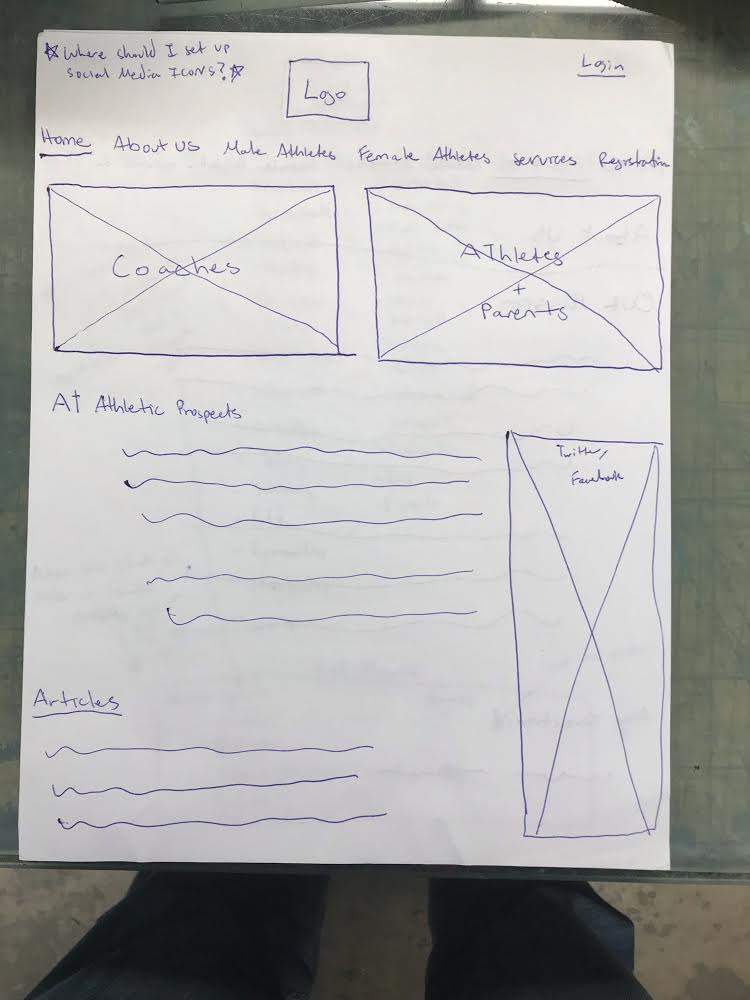 ☆ Where should I set up
Social Media ICONS? ☆
Login
Logo
Home About US Male Athletes Female Athletes services Registration
Coaches
Athletes
+
Parents
At Athletic Prospects
Twitter/
Facebook
Articles